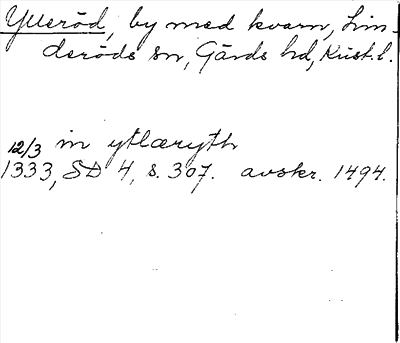 Ylleröd, by med kvarn, Lin-
deröds sn, Gärds hd, Krist. l.
12/3 in ytlæryth
1333, SD 4, s. 307. avskr. 1494.